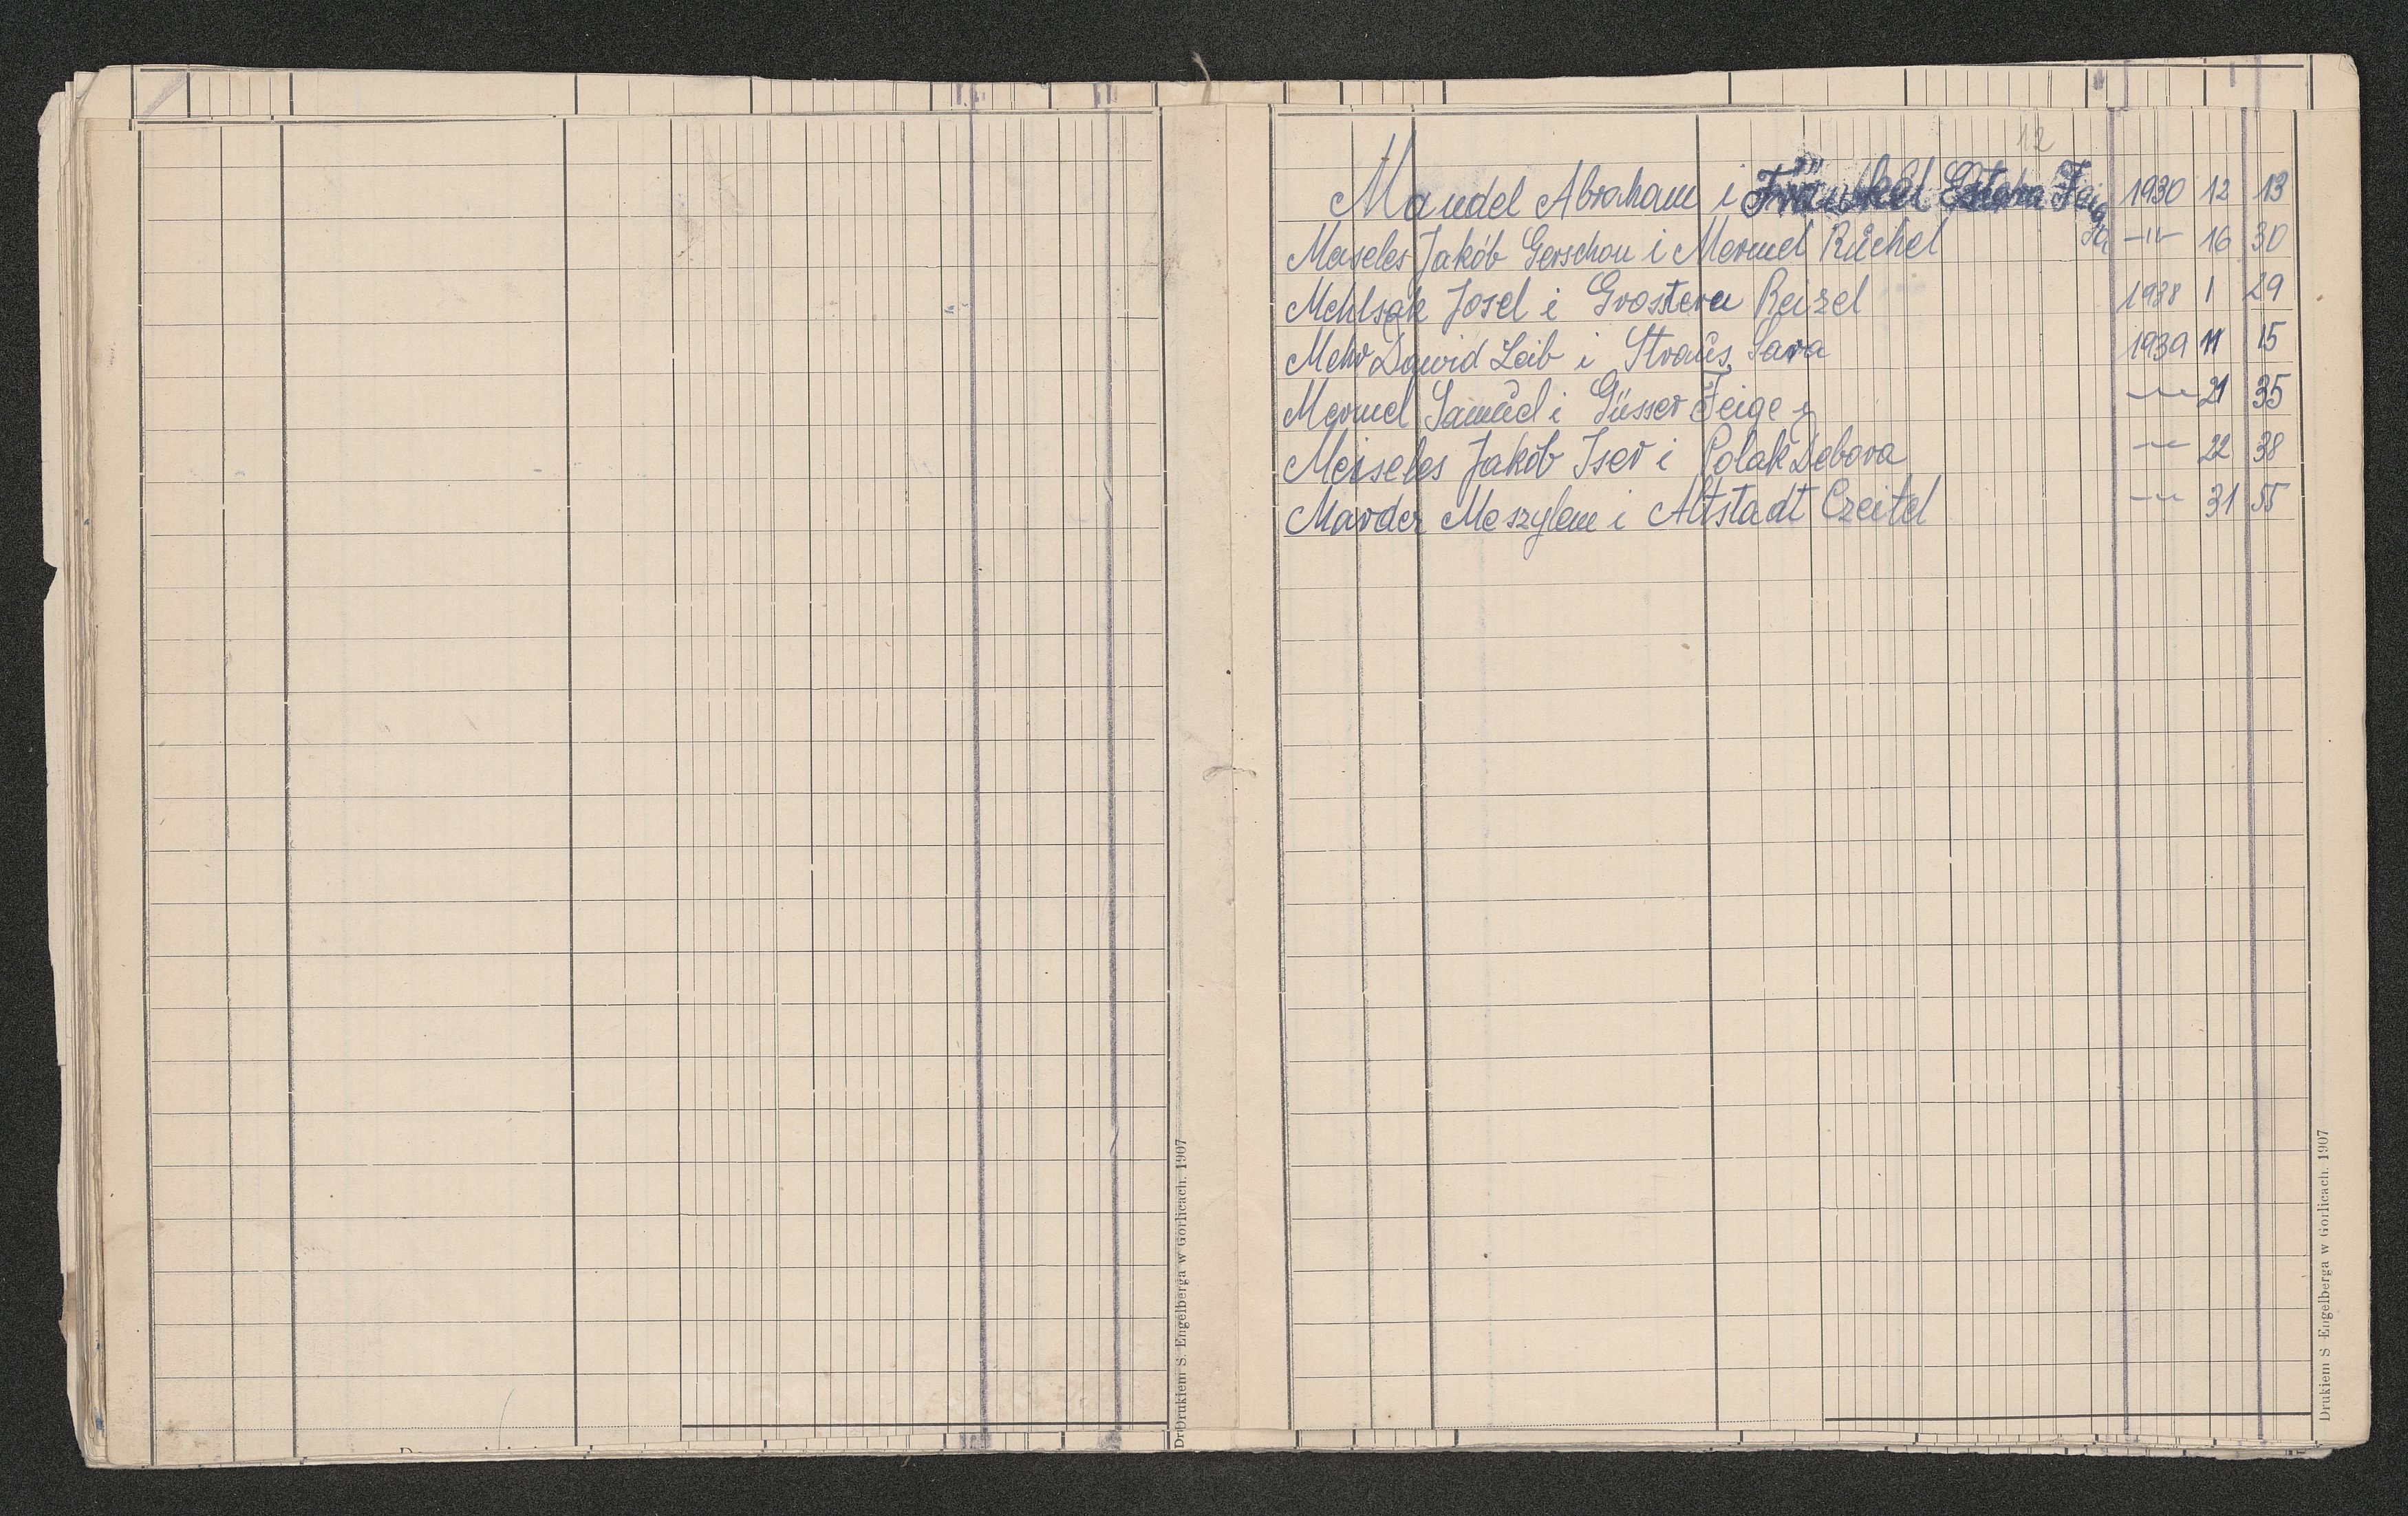 12
Mandel Abraham i Fränkel Estera Feiga 1930 12 13
Maseles Jakób Gerschon i Mermel Rŭchel -"- 16 30
Mehlsak Josel i Grostern Reizel 1938 1 29
Mehr Dawid Leib i Straŭs Sara 1939 11 15
Mermel Samŭel i Güsser Feige -"- 21 35
Meiseles Jakób Iser i Polak Debora -"- 22 38
Marder Meszylem i Altstadt Czeitel -"- 31 55
Drukiem S. Engelberga w Gorlicach. 1907
Drukiem S. Engelberga w Gorlicach. 1907